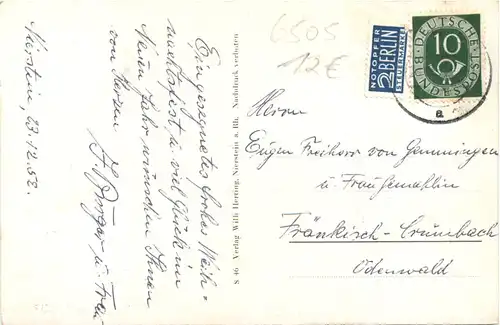 Nierstein, 23.12.52.
Ein gesegnetes frohes Weih-
nachtsfest u. viel Glück im
Neuen Jahr wünschen Ihnen
von Herzen
J. Bürger u. Frau
S 46 Verlag Willi Herting, Nierstein a. Rh. Nachdruck verboten
6505
12€
NOTOPFER
2 BERLIN
STEUERMARKE
DEUTSCHE BUNDESPOST
10
a
Herrn
Eugen Freiherr von Gemmingen
u. Frau Gemahlin
Fränkisch-Crumbach
Odenwald